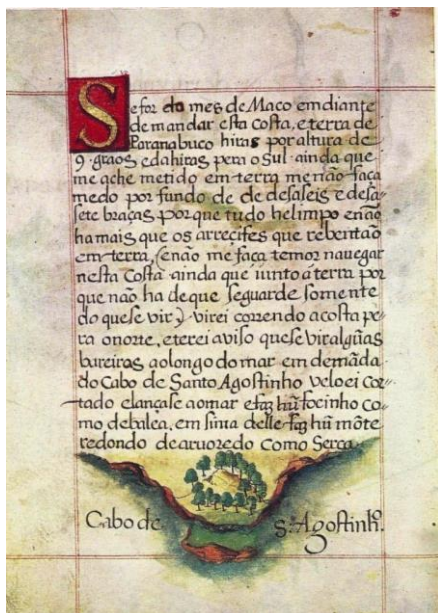 Se for do mes de Março em diante
demandar esta costa, e terra de
Paranabuco hiras por altura de
9. graos e dahiras pera o Sul ainda que
me ache metido em terra me não faça
medo por fundo de de dasaseis e desa-
sete braças por que tudo he limpo e não
ha mais que os arreçifes que rebentão
em terra, (e não me faça temor nauegar
nesta Costa ainda que iunto á terra por
que não ha de que se guarde somente
do que se vir) virei correndo a costa pe-
ra o norte, e terei aviso que se vir algũas
bareiras ao longo do mar em demãda
do Cabo de Santo Agostinho veloei cor-
tado e lançase ao mar e faz hũ focinho co-
mo de balea, em sima delle faz hũ mõte
redondo de aruoredo como Serca.
Cabo de S.to Agostinho.